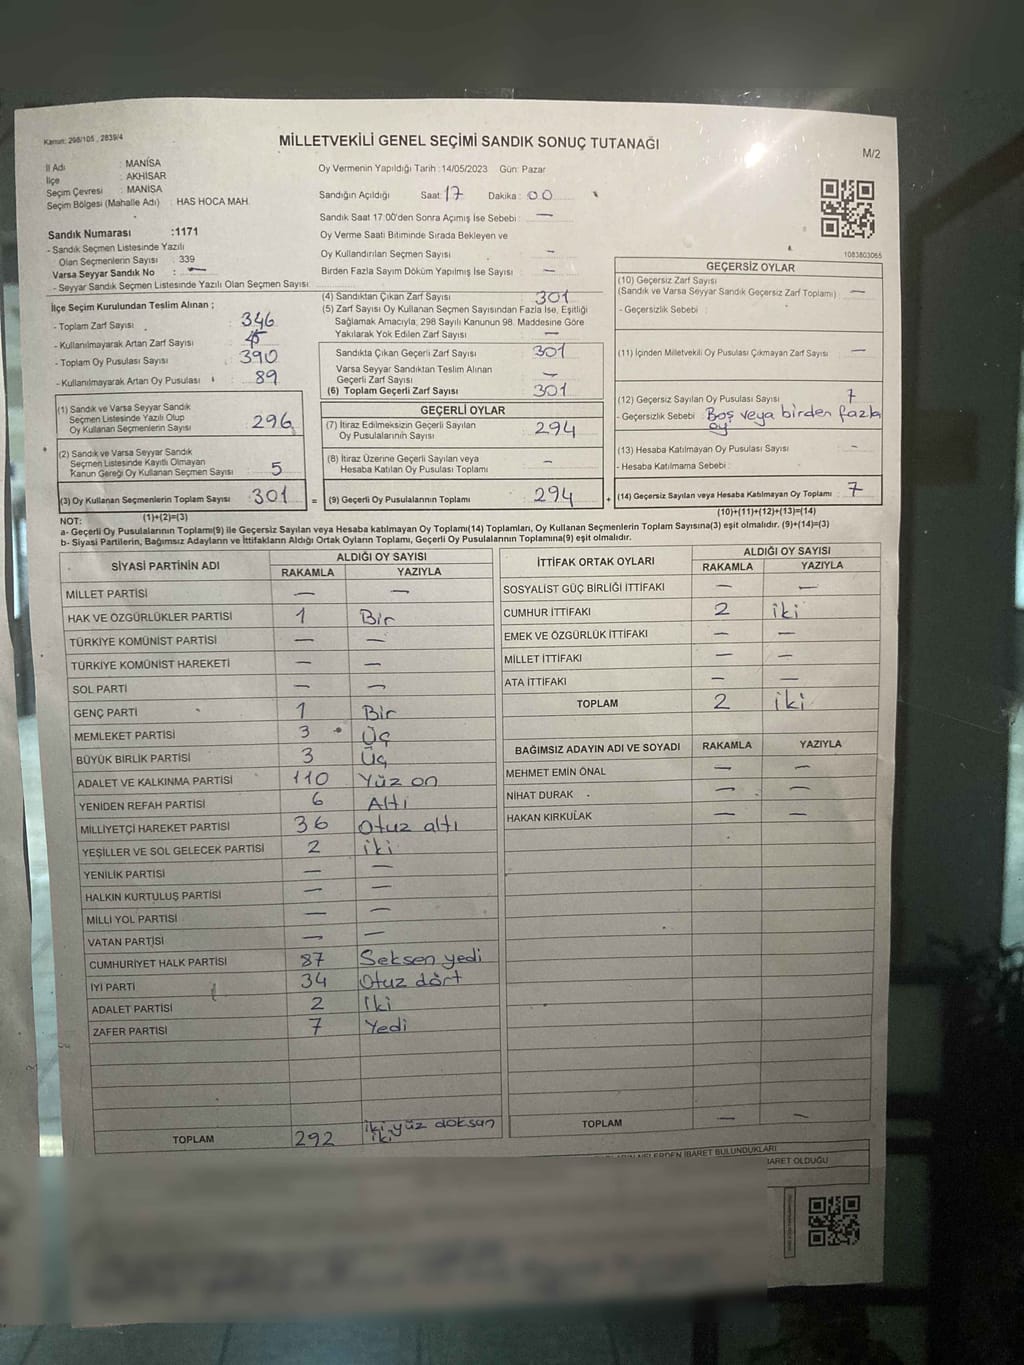 Kanun: 298/105 , 2839/4
MİLLETVEKİLİ GENEL SEÇİMİ SANDIK SONUÇ TUTANAĞI
M/2
İl Adı : MANİSA
İlçe : AKHİSAR
Seçim Çevresi : MANİSA
Seçim Bölgesi (Mahalle Adı) : HAS HOCA MAH.
Oy Vermenin Yapıldığı Tarih :14/05/2023 Gün: Pazar
Sandığın Açıldığı Saat: 17 Dakika : 00
Sandık Saat 17:00'den Sonra Açılmış İse Sebebi : —
Oy Verme Saati Bitiminde Sırada Bekleyen ve
Oy Kullandırılan Seçmen Sayısı —
Birden Fazla Sayım Döküm Yapılmış İse Sayısı —
Sandık Numarası :1171
- Sandık Seçmen Listesinde Yazılı
Olan Seçmenlerin Sayısı : 339
Varsa Seyyar Sandık No : —
- Seyyar Sandık Seçmen Listesinde Yazılı Olan Seçmen Sayısı
1083803065
İlçe Seçim Kurulundan Teslim Alınan ;
- Toplam Zarf Sayısı : 346
- Kullanılmayarak Artan Zarf Sayısı : 45
- Toplam Oy Pusulası Sayısı : 390
- Kullanılmayarak Artan Oy Pusulası : 89
(1) Sandık ve Varsa Seyyar Sandık
Seçmen Listesinde Yazılı Olup
Oy Kullanan Seçmenlerin Sayısı 296
(2) Sandık ve Varsa Seyyar Sandık
Seçmen Listesinde Kayıtlı Olmayan
Kanun Gereği Oy Kullanan Seçmen Sayısı 5
(3) Oy Kullanan Seçmenlerin Toplam Sayısı 301 =
(1)+(2)=(3)
(4) Sandıktan Çıkan Zarf Sayısı 301
(5) Zarf Sayısı Oy Kullanan Seçmen Sayısından Fazla İse, Eşitliği
Sağlamak Amacıyla, 298 Sayılı Kanunun 98. Maddesine Göre
Yakılarak Yok Edilen Zarf Sayısı —
Sandıkta Çıkan Geçerli Zarf Sayısı 301
Varsa Seyyar Sandıktan Teslim Alınan
Geçerli Zarf Sayısı —
(6) Toplam Geçerli Zarf Sayısı 301
GEÇERLİ OYLAR
(7) İtiraz Edilmeksizin Geçerli Sayılan
Oy Pusulalarının Sayısı 294
(8) İtiraz Üzerine Geçerli Sayılan veya
Hesaba Katılan Oy Pusulası Toplamı —
(9) Geçerli Oy Pusulalarının Toplamı 294 +
GEÇERSİZ OYLAR
(10) Geçersiz Zarf Sayısı
(Sandık ve Varsa Seyyar Sandık Geçersiz Zarf Toplamı) —
- Geçersizlik Sebebi :
(11) İçinden Milletvekili Oy Pusulası Çıkmayan Zarf Sayısı —
(12) Geçersiz Sayılan Oy Pusulası Sayısı 7
- Geçersizlik Sebebi : Boş veya birden fazla
oy
(13) Hesaba Katılmayan Oy Pusulası Sayısı —
- Hesaba Katılmama Sebebi :
(14) Geçersiz Sayılan veya Hesaba Katılmayan Oy Toplamı 7
(10)+(11)+(12)+(13)=(14)
NOT:
a- Geçerli Oy Pusulalarının Toplamı(9) ile Geçersiz Sayılan veya Hesaba katılmayan Oy Toplamı(14) Toplamları, Oy Kullanan Seçmenlerin Toplam Sayısına(3) eşit olmalıdır. (9)+(14)=(3)
b- Siyasi Partilerin, Bağımsız Adayların ve İttifakların Aldığı Ortak Oyların Toplamı, Geçerli Oy Pusulalarının Toplamına(9) eşit olmalıdır.
SİYASİ PARTİNİN ADI ALDIĞI OY SAYISI
RAKAMLA YAZIYLA
MİLLET PARTİSİ — —
HAK VE ÖZGÜRLÜKLER PARTİSİ 1 Bir
TÜRKİYE KOMÜNİST PARTİSİ — —
TÜRKİYE KOMÜNİST HAREKETİ — —
SOL PARTİ — —
GENÇ PARTİ 1 Bir
MEMLEKET PARTİSİ 3 Üç
BÜYÜK BİRLİK PARTİSİ 3 Üç
ADALET VE KALKINMA PARTİSİ 110 Yüz on
YENİDEN REFAH PARTİSİ 6 Altı
MİLLİYETÇİ HAREKET PARTİSİ 36 Otuz altı
YEŞİLLER VE SOL GELECEK PARTİSİ 2 iki
YENİLİK PARTİSİ — —
HALKIN KURTULUŞ PARTİSİ — —
MİLLİ YOL PARTİSİ — —
VATAN PARTİSİ — —
CUMHURİYET HALK PARTİSİ 87 Seksen yedi
İYİ PARTİ 34 Otuz dört
ADALET PARTİSİ 2 İki
ZAFER PARTİSİ 7 Yedi
TOPLAM 292 iki yüz doksan
iki
İTTİFAK ORTAK OYLARI ALDIĞI OY SAYISI
RAKAMLA YAZIYLA
SOSYALİST GÜÇ BİRLİĞİ İTTİFAKI — —
CUMHUR İTTİFAKI 2 iki
EMEK VE ÖZGÜRLÜK İTTİFAKI — —
MİLLET İTTİFAKI — —
ATA İTTİFAKI — —
TOPLAM 2 iki
BAĞIMSIZ ADAYIN ADI VE SOYADI RAKAMLA YAZIYLA
MEHMET EMİN ÖNAL — —
NİHAT DURAK — —
HAKAN KIRKULAK — —
TOPLAM — —
İBARET BULUNDUKLARI
İBARET OLDUĞU